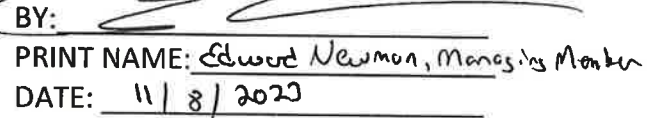 BY:
PRINT NAME: Edward Newman, Managing Member
DATE: 11/8/2023